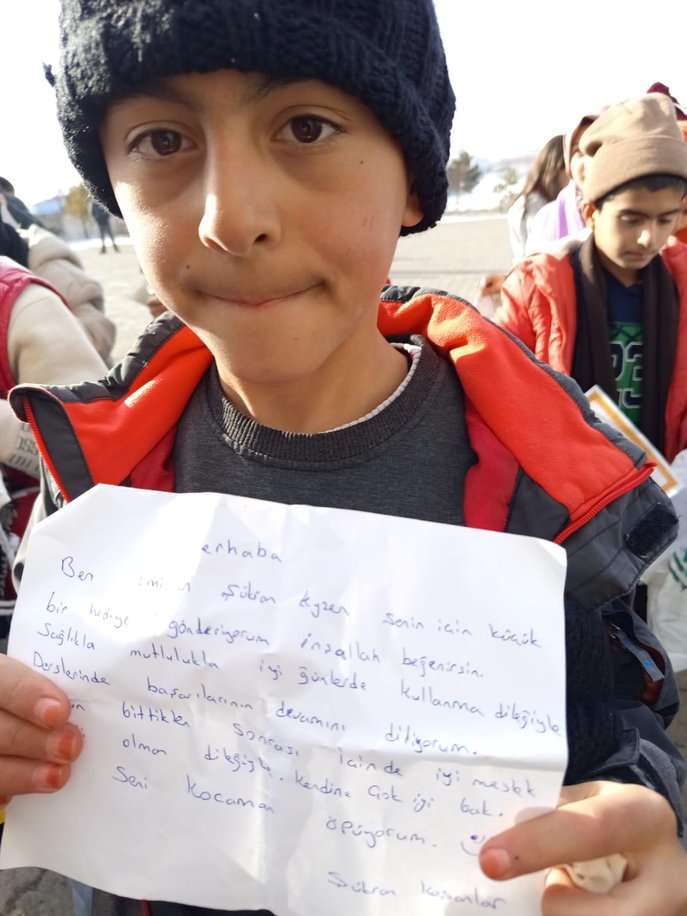 erhaba
Ben Şükran senin için küçük
bir gönderiyorum inşallah beğenirsin.
Sağlıkla mutlulukla iyi günlerde kullanma dileğiyle
Derslerinde başarılarının devamını diliyorum.
bittikten sonrası içinde iyi meslek
olman dileğiyle. Kendine çok iyi bak.
Seni kocaman öpüyorum.
Şükran